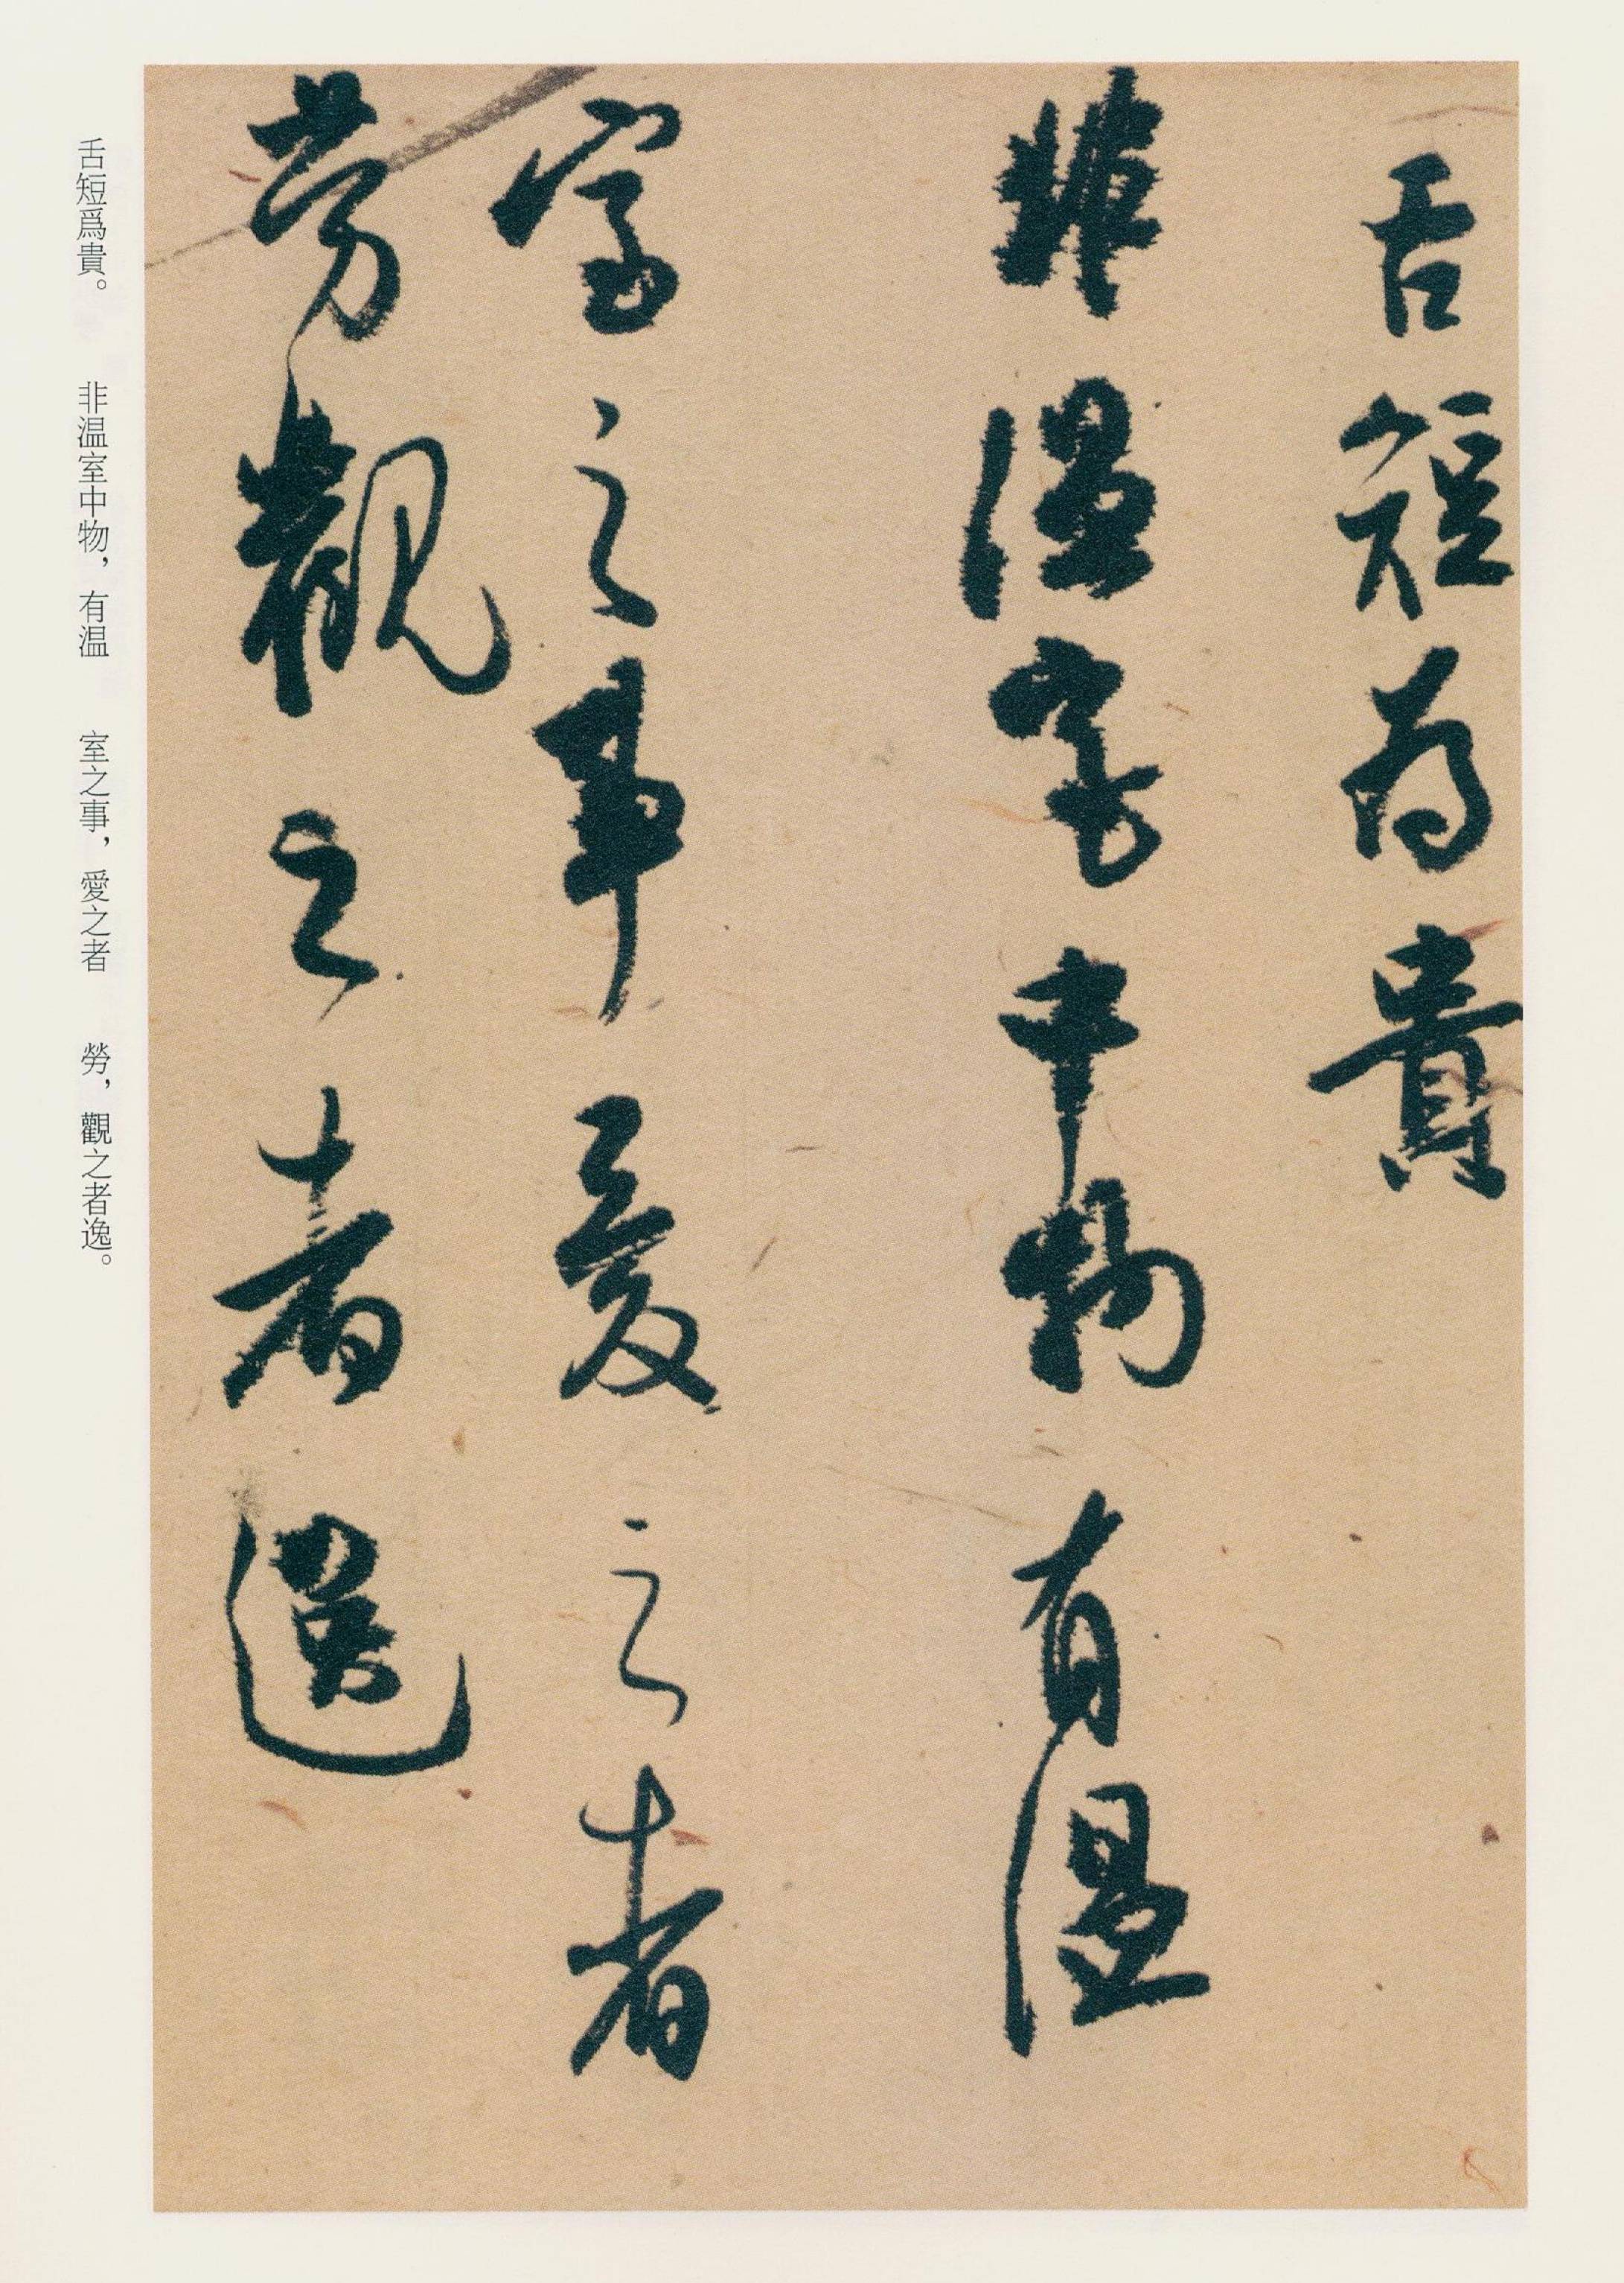 舌短为貴
非温室中物有温
室之事爱之者
劳觀之者逸
舌短爲貴。　非温室中物，有温　室之事，愛之者　勞，觀之者逸。